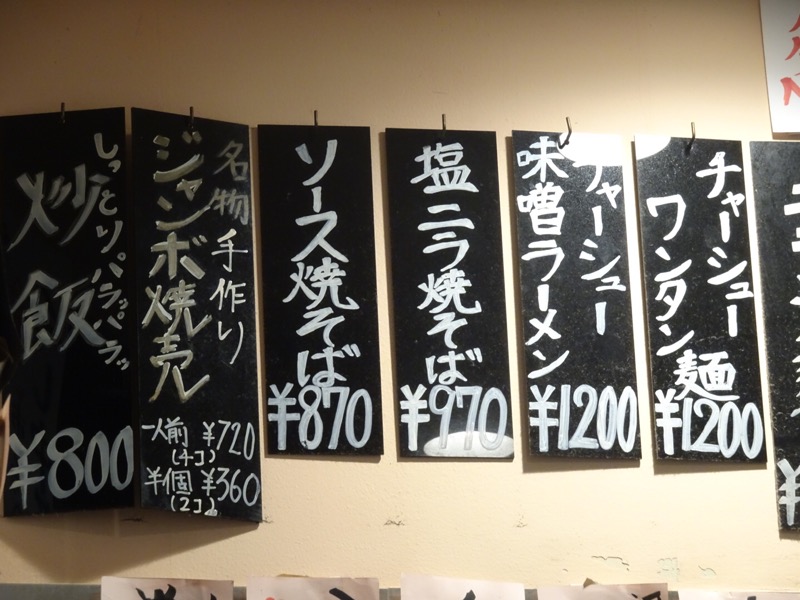 しっとりパラッパラッ
炒飯
¥800
名物 手作り
ジャンボ焼売
一人前 ¥720
(4コ)
半個 ¥360
(2コ)
ソース焼そば
¥870
塩ニラ焼そば
¥970
チャーシュー
味噌ラーメン
¥1200
チャーシュー
ワンタン麺
¥1200